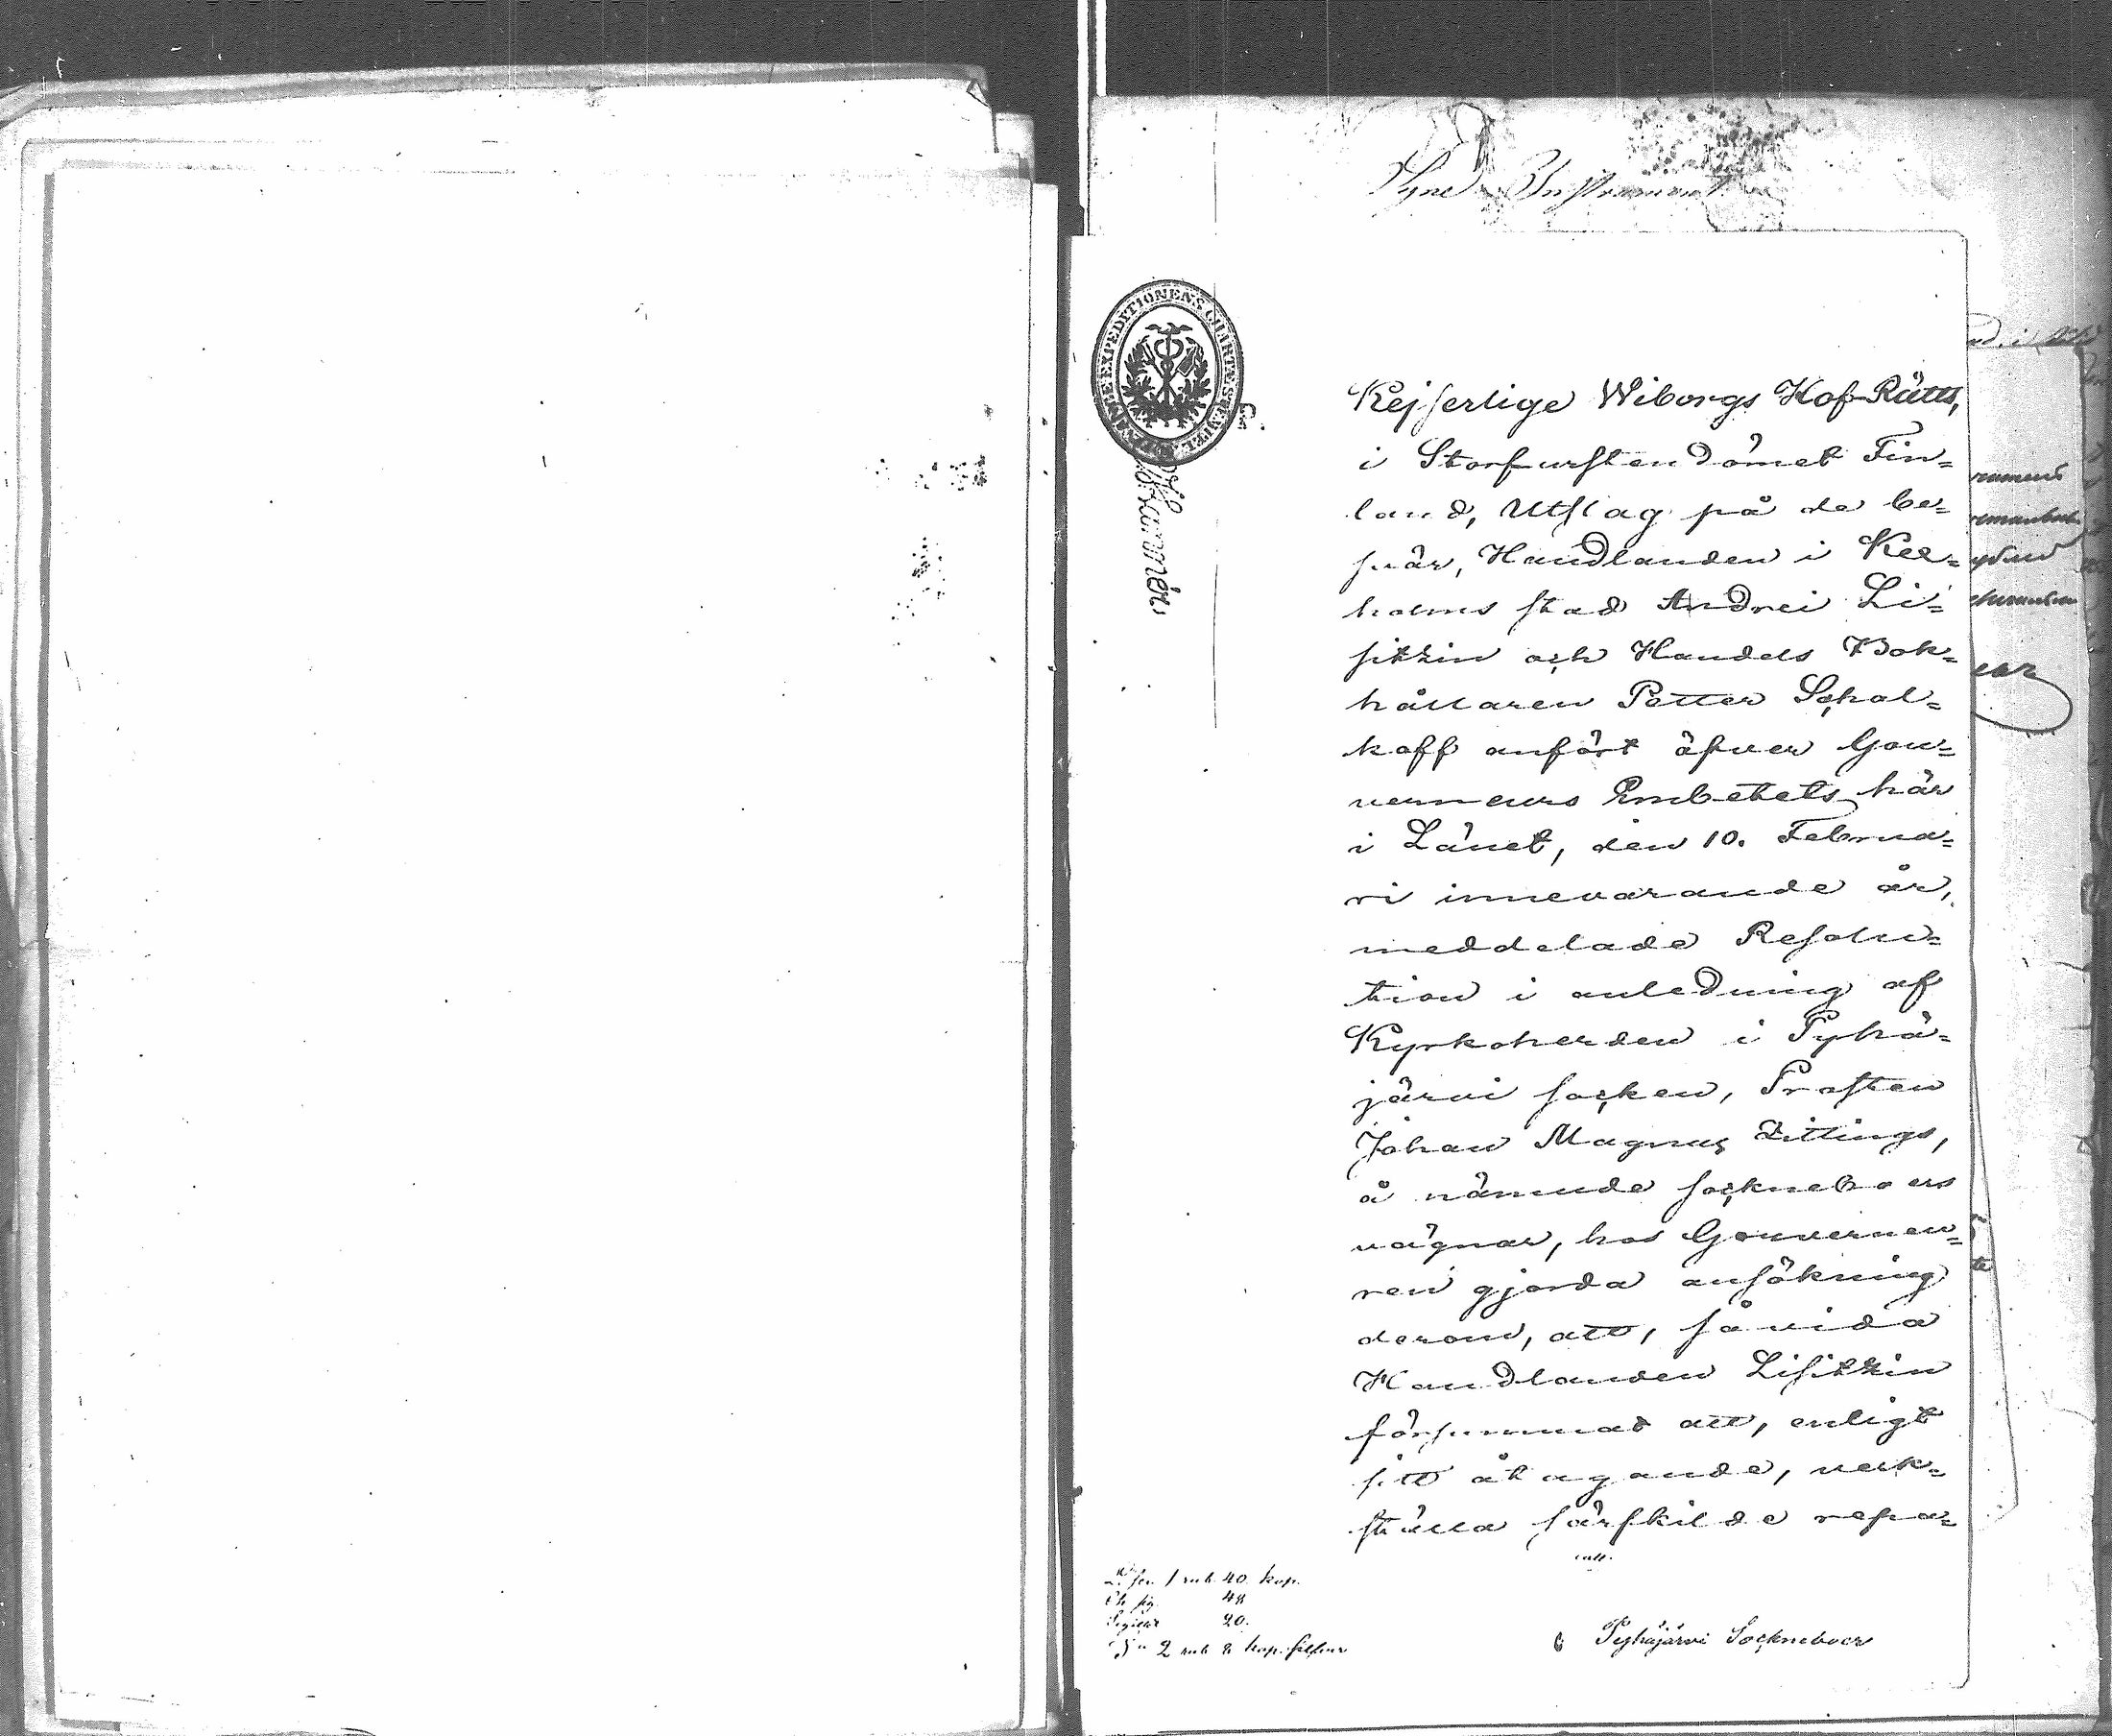 Syne Instrument
FINANCE EXPEDITIONENS CHARTÆ STEMPEL
Kejserlige Wiborgs Hof-Rätts,
i Storfurstendömet Fin=
land, Utslag på de be=
svär, Handlanden i Kex=
holms stad Andrei Li=
sitzin och Handels Bok=
hållaren Petter Schal=
koff anfört öfver Gou=
verneurs Embetets här
i Länet, den 10. Februa=
ri innevarande år,
meddelade Resolu=
tion i anledning af
Kyrkoherden i Pyhä=
järvi socken, Prosten
Johan Magnus Zittings,
å nämnde sockneboers
vägnar, hos Gouverneu=
ren gjorda ansökning
derom, att, så vida
Handlanden Lisitzin
försummat att, enligt
sitt åtagande, verk=
ställa särskilde repa=
1 rub. 40. kop.
48
20.
2 rub 8 kop. silfver
Pyhäjärvi Socknеboer